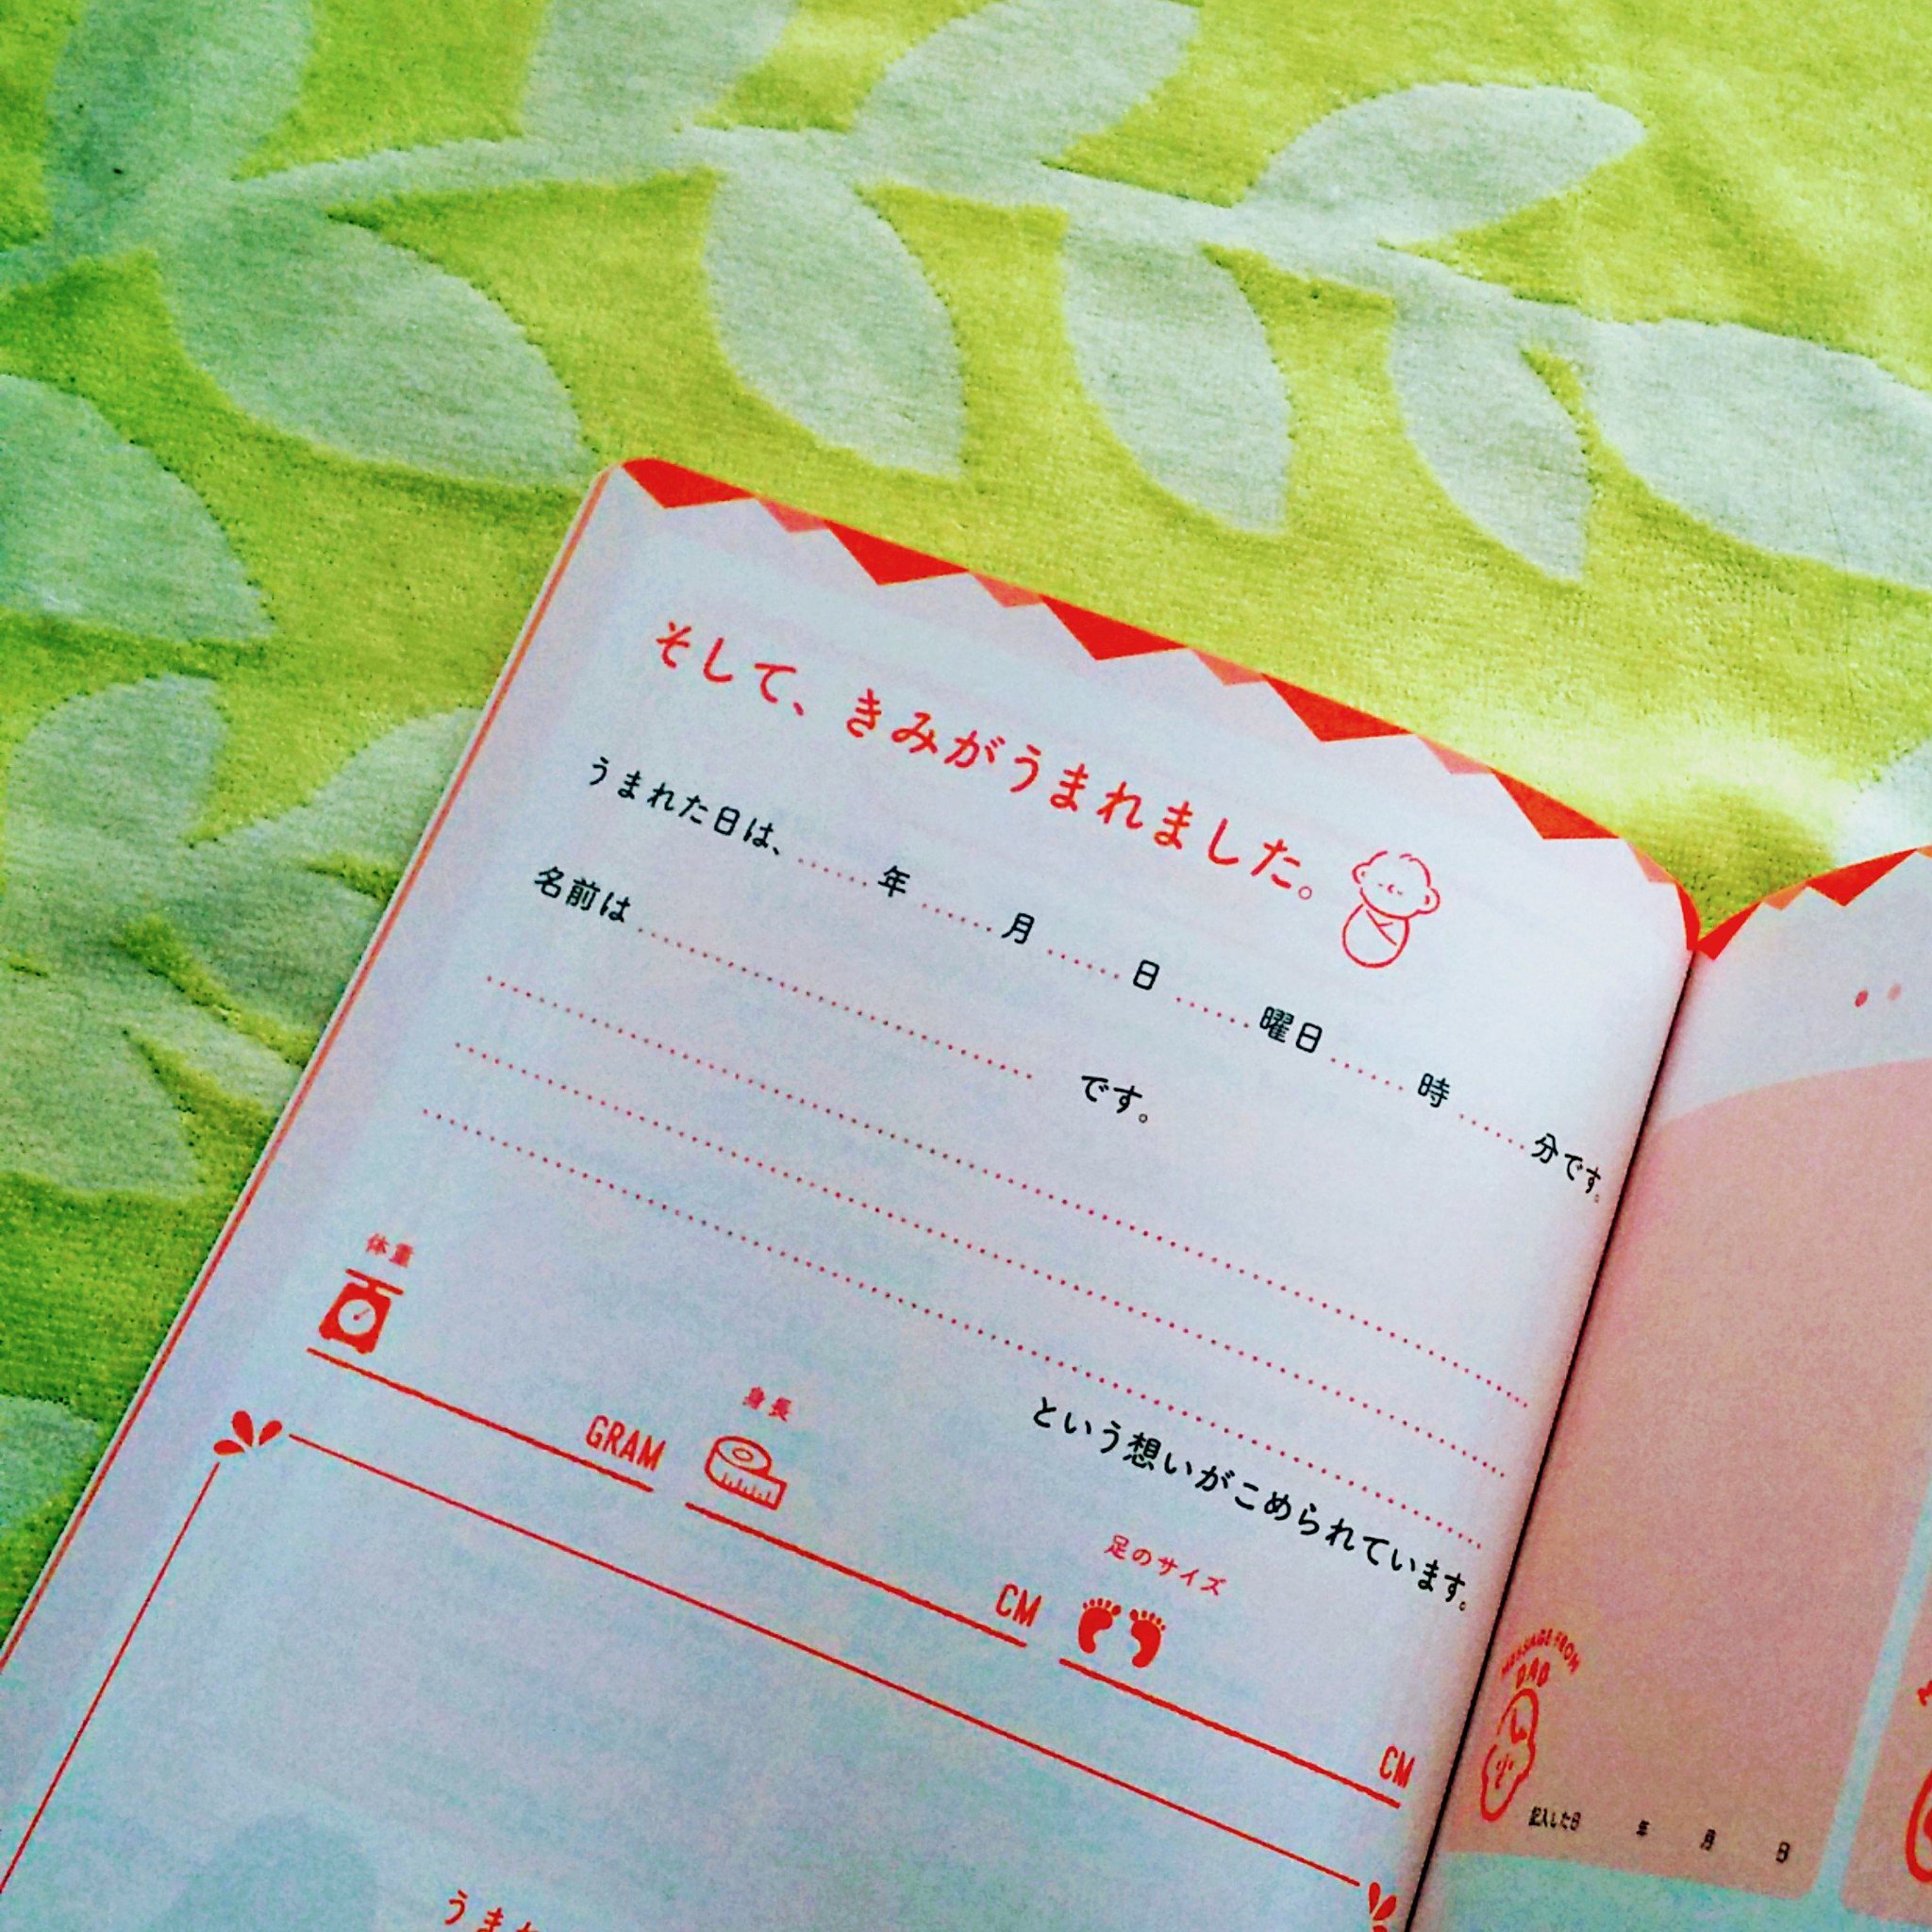 そして、きみがうまれました。
うまれた日は、 年 月 日 曜日 時 分です。
名前は です。
という想いがこめられています。
体重
GRAM
身長
CM
足のサイズ
CM
MESSAGE FROM
DAD
記入した日 年 月 日